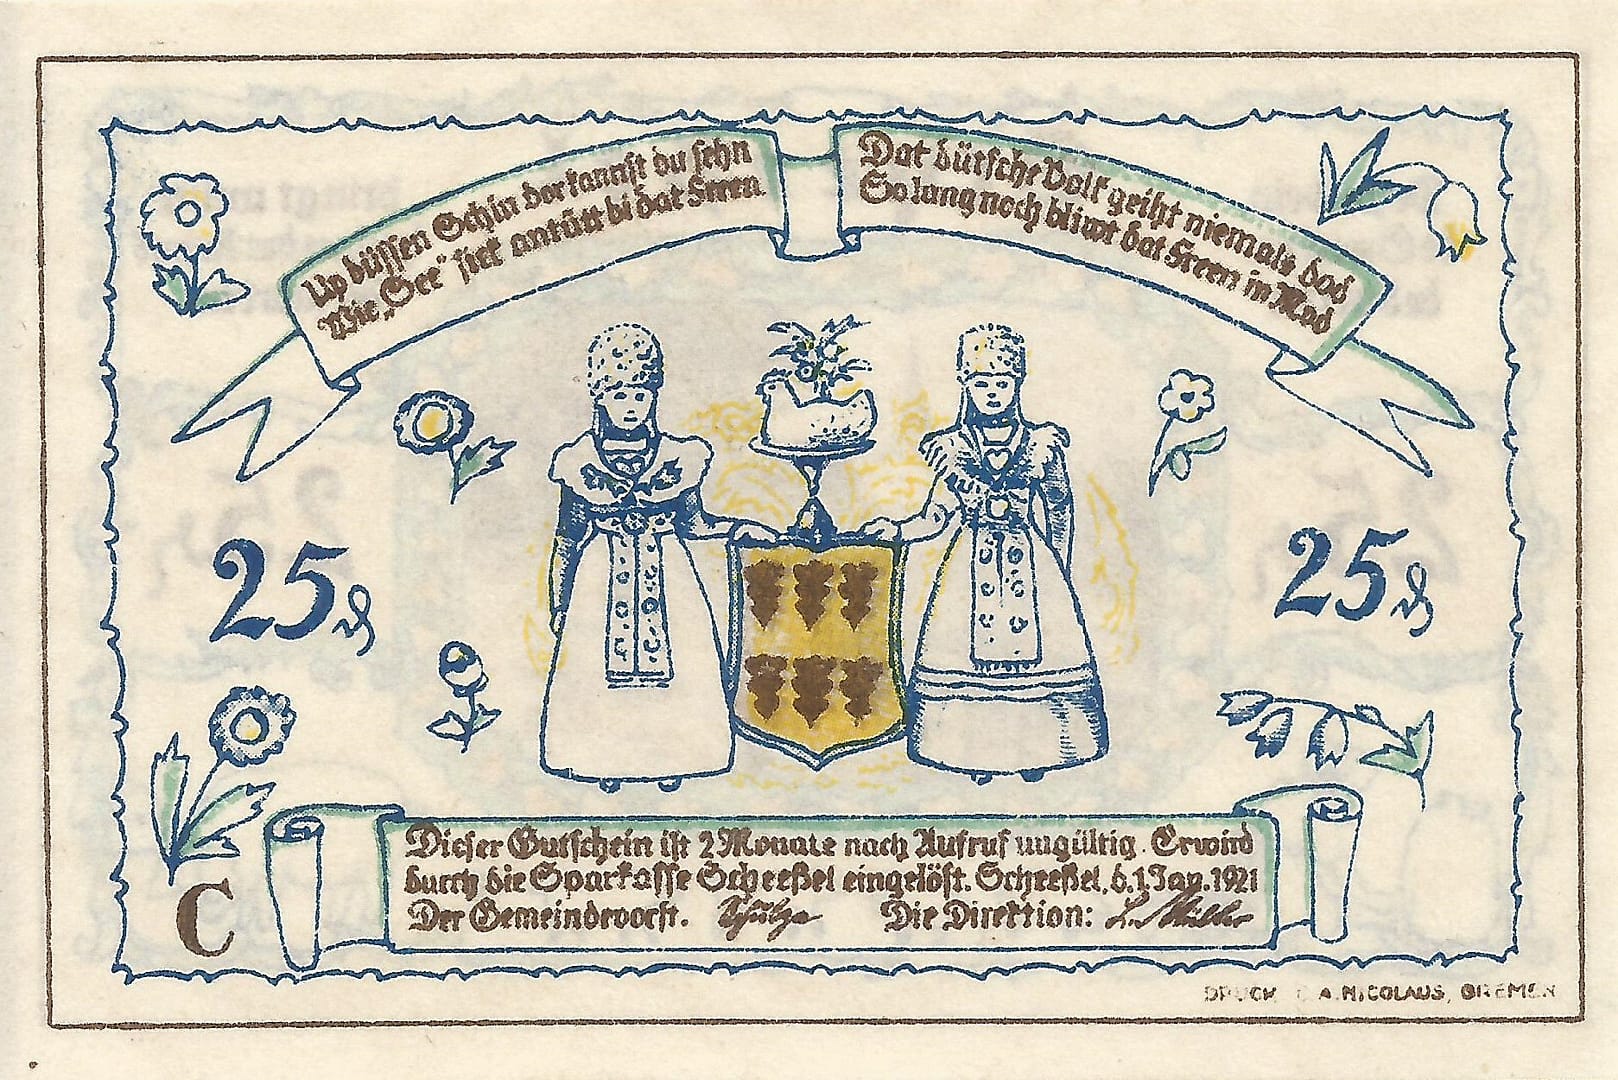 Up düssen Schin dor kannst du sehn
Wie „See" sick antütt bi dat Freen
Dat dütsche Volk geiht niemals dod
So lang noch bliwt dat Freen in Mod
25 ₰
25 ₰
Dieser Gutschein ist 2 Monate nach Aufruf ungültig. Er wird
durch die Sparkasse Scheeßel eingelöst. Scheeßel, d. 1. Jan. 1921
Der Gemeindevorst. Schulze Die Direktion: L. Müller
C
DRUCK C. A. NICOLAUS, BREMEN